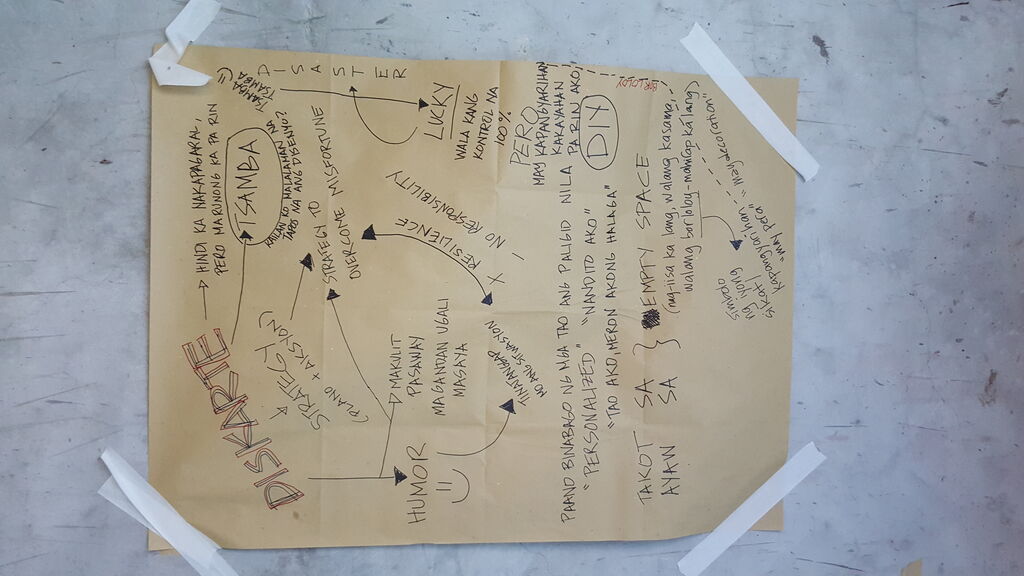 DISKARTE
→ HINDI KA NAKAPAGARAL,
PERO MARUNONG KA PA RIN
TSAMBA
KAILAN KO MALALAMAN NA
TAPO NA ANG DISENYO?
TSAMBA
TSAMBA
DISASTER
STRATEGY
(PLANO + AKSYON)
STRATEGY TO
OVERCOME MISFORTUNE
LUCKY
WALA KANG
KONTROL NA
100%
HUMOR
MAKULIT
PASAWAY
MAGANDAN UGALI
MASAYA
RESILIENCE
X
NO RESPONSIBILITY
TINATANGGAP
MO ANG SITWASYON
PERO
MAY KAPANGYARIHAN
KAKAYAHAN
PA RIN AKO
DIY
PAANO BINABAGO NG MGA TAO ANG PALIGID NILA
"PERSONALIZED" "NANDITO AKO"
"TAO AKO, MERON AKONG HALAGA"
TAKOT SA
AYAN SA
EMPTY SPACE
BORLOLOY
(nag-iisa ka lang, walang kasama,
walang borloloy - mahirap ka lang)
simbolo
ng iyong
sikat
kapangyarihan - "May decoration"
"may pera"